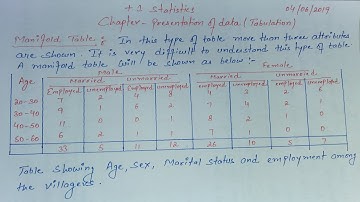 +1 Statistics
04/06/2019
Chapter - Presentation of data. (Tabulation)
Manifold Table :- In this type of table more than three attributes
are shown. It is very difficult to understand this type of table
A manifold table will be shown as below :-
Age Male Female
Married unmarried Married unmarried
Employed unemployed Employed unemployed Employed unemployed Employed unemployed
20-30 7 2 4 8 4 3 2
30-40 9 1 6 2 7 4 2 1
40-50 11 0 0 1 8 2 0
50-60 6 2 1 1 7 1 0 0
33 5 11 12 26 10 5
Table Showing Age, Sex, Marital Status and employment among
the villagers.